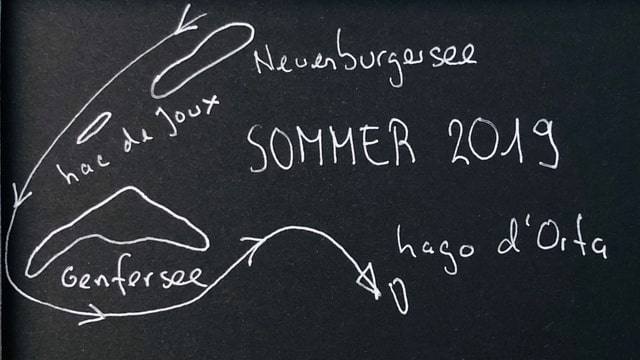 Neuenburgersee
Lac de Joux
SOMMER 2019
Lago d'Orta
Genfersee